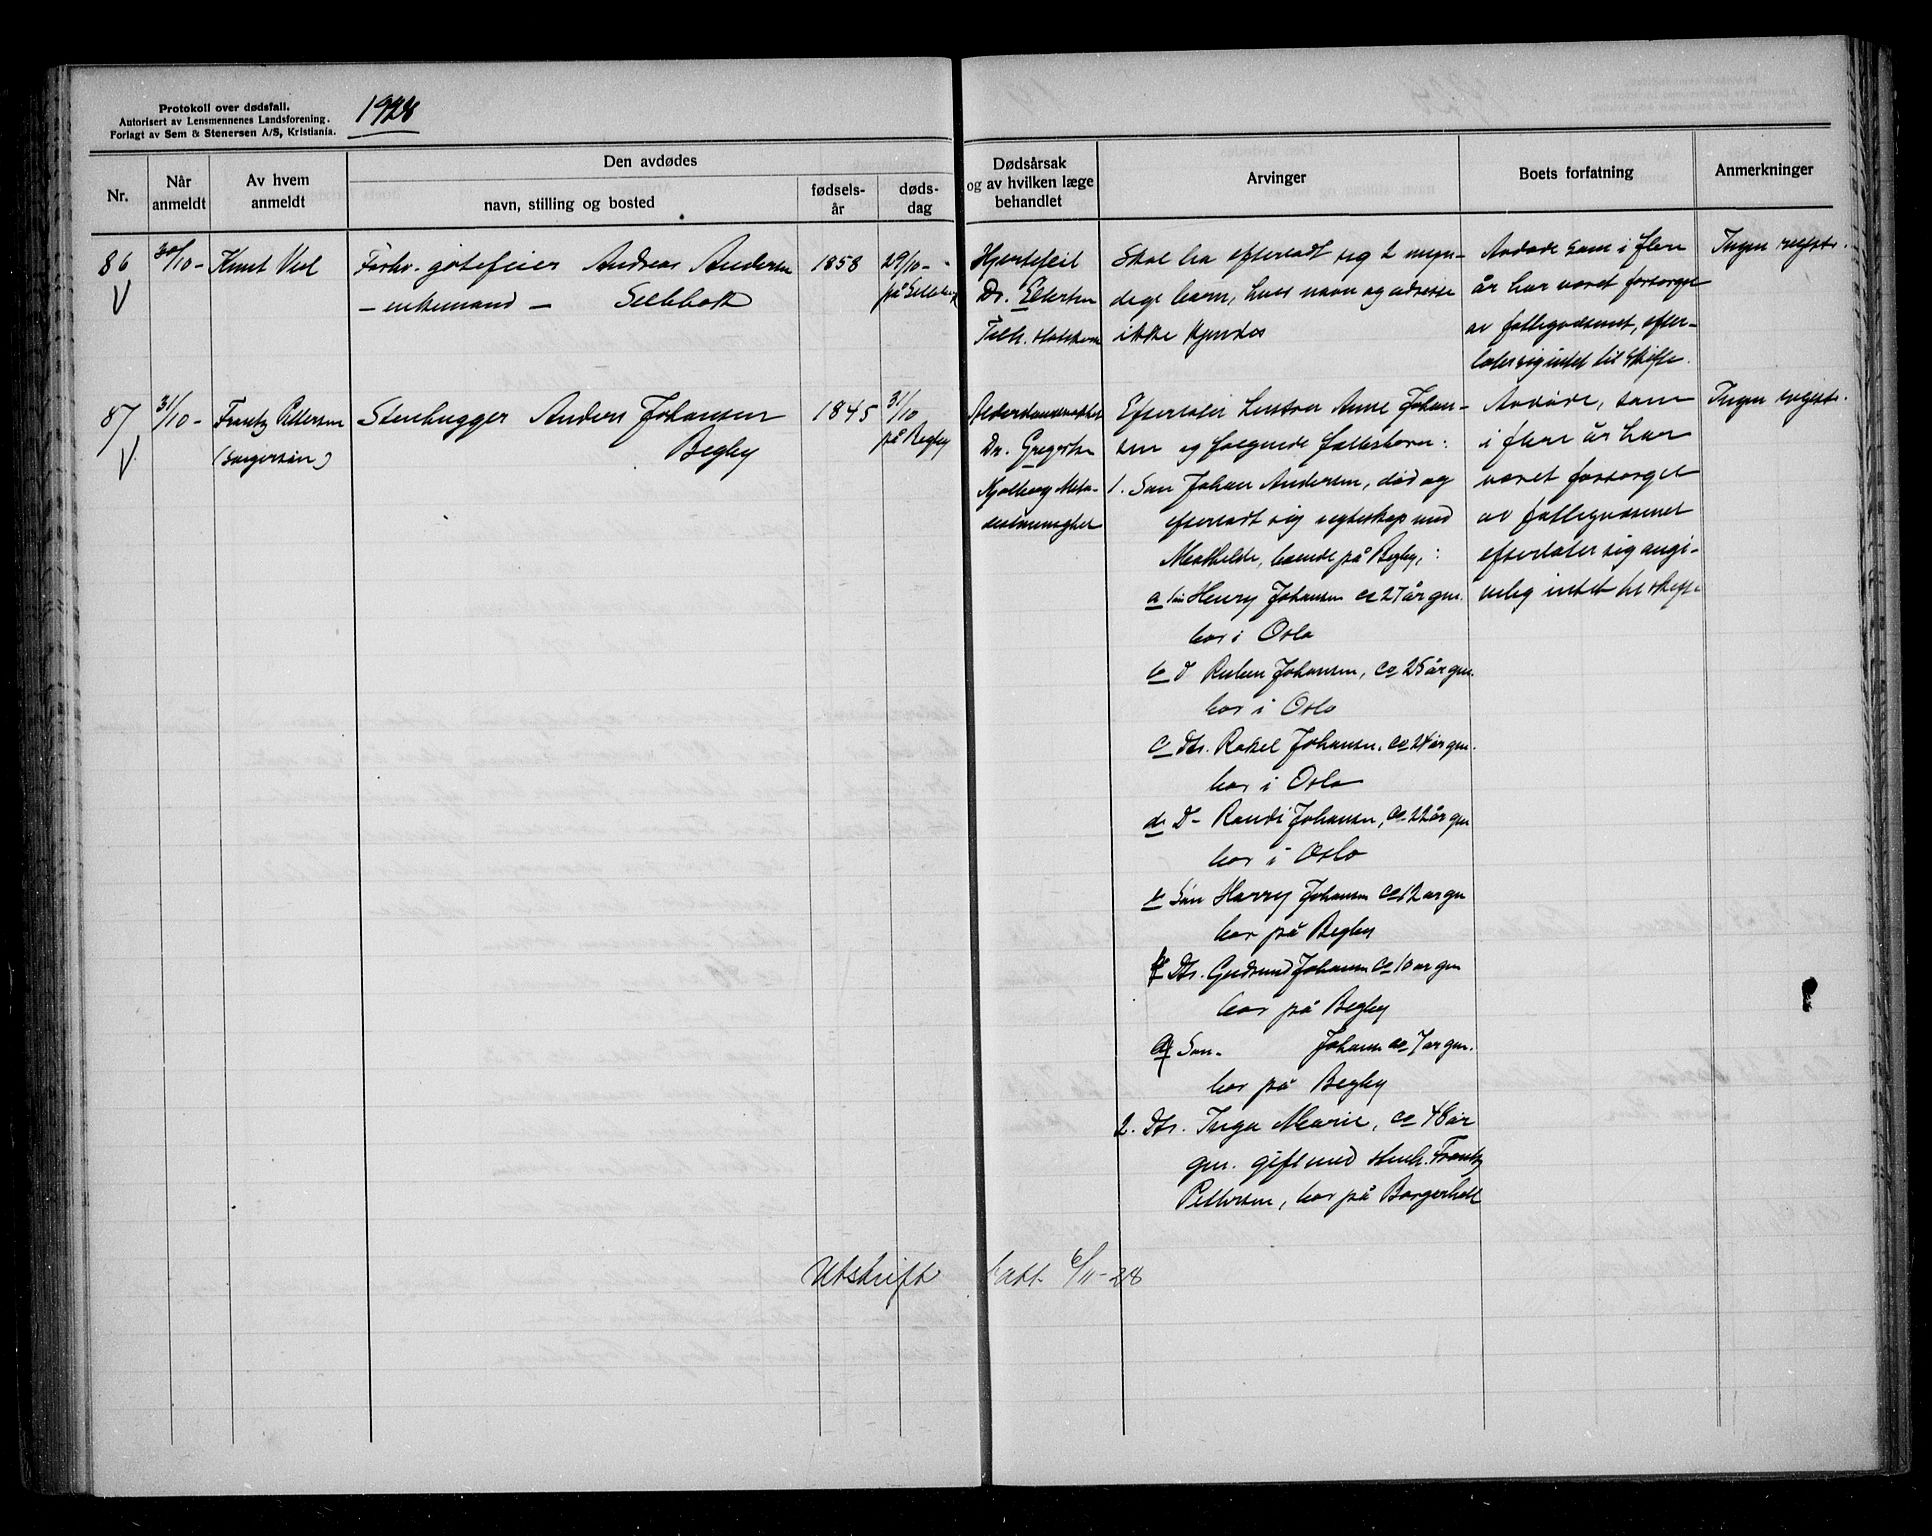 Protokoll over dødsfall.
Autorisert av Lensmennenes Landsforening.
Forlagt av Sem & Stenersen A/S, Kristiania.
1928
Nr.
Når anmeldt
Av hvem anmeldt
Den avdødes
navn, stilling og bosted
fødsels-år
døds-dag
Dødsårsak
og av hvilken læge
behandlet
Arvinger
Boets forfatning
Anmerkninger
86
30/10 -
Knut
Forhv. gatefeier Andreas Andersen
- enkemand - Sellebakk
1858
29/10 -
på Sellebakk
Hjertefeil
Dr. Ellertsen
Skal ha efterladt sig 2 myn-
dige barn, hvis navn og adresse
ikke kjendes
Avdøde som i flere
år har været forsørget
av fattigvæsenet, efter-
later sig intet til skifte.
Ingen registr.
87
31/10 -
Frantz Pettersen
(svigersøn)
Stenhugger Anders Johansen
Begby
1845
31/10
på Begby
Alderdomssvakhet
Dr. Gregertsen
Efterlater hustru Anne Johan-
sen og følgende fællesbarn:
1. Søn Johan Andersen, død og
efterladt sig i egteskap med
Mathilde, boende på Begby,:
a Søn Henry Johansen ca 27 år gm.
bor i Oslo
b D Ruben Johansen, ca 25 år gm.
bor i Oslo
c Dtr. Rakel Johansen, ca 24 år gm.
bor i Oslo
d D- Randi Johansen, ca 22 år gm
bor i Oslo
e Søn Harry Johansen ca 12 år gm
bor på Begby
f Dtr. Gudrund Johansen ca 10 år gm
bor på Begby
g Søn- Johansen ca 7 år gm.
bor på Begby
2. Dtr. Inga Marie, ca 48 år
gm. gift med stenh. Frantz
Pettersen, bor på Borgerholt
Avdøde, som
i flere år har
været forsørget
av fattigvæsenet
efterlater sig angi-
velig intet til skifte
Ingen registr.
Utskrift tatt 6/11-28